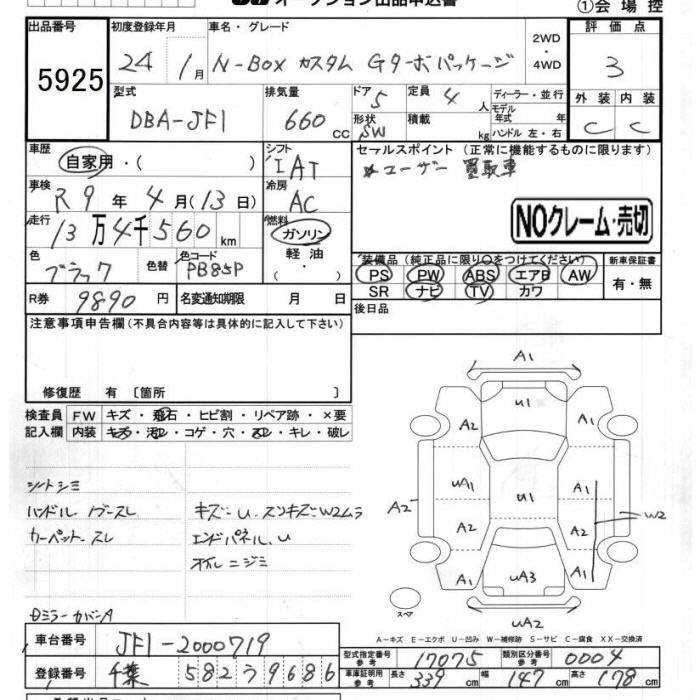 オークション出品申込書
①会場控
出品番号
5925
初度登録年月
24 年 1月
車名・グレード
N-BOX カスタム Gターボパッケージ
2WD
・
4WD
評価点
3
型式
DBA-JF1
排気量
660 CC
ドア
5
形状
SW
定員
4 人
積載
kg
ディーラー・並行
モデル年式 年
ハンドル 左・右
外装 内装
C C
車歴
自家用・( )
シフト
IAT
セールスポイント (正常に機能するものに限ります)
ユーザー 買取車
車検
R9年4月(13日)
冷房
AC
NOクレーム・売切
走行
13万4千560km
燃料
ガソリン
軽油
・
( )
色
ブラック
色替
色コード
PB85P
装備品 (純正品に限り○をつけてください)
PS PW ABS エアB AW
SR ナビ TV カワ
新車保証書
有・無
R券
9890円
名変通知期限 月 日
後日品
注意事項申告欄 (不具合内容等は具体的に記入して下さい)
修復歴 有 〔箇所 〕
検査員
記入欄
FW キズ・飛石・ヒビ割・リペア跡・×要
内装 キズ・汚レ・コゲ・穴・スレ・キレ・破レ
シートシミ
ハンドル
スレ
カーペットスレ
キズ U. スリキズ W2ムラ
エンドパネル U
オイルニジミ
ミラーカバーA
A1
U1
A2
A1
UA1
U1
A1
A2
A2
A2
W2
A1
UA3
A1
UA2
スペア
A-キズ E-エクボ U-凹み W-補修跡 S-サビ C-腐食 XX-交換済
車台番号
JF1-2000719
登録番号
千葉 582う9686
型式指定番号
参考
17075
類別区分番号
参考
0004
車庫証明用
参考
長さ 339cm 幅 147cm 高さ 178cm